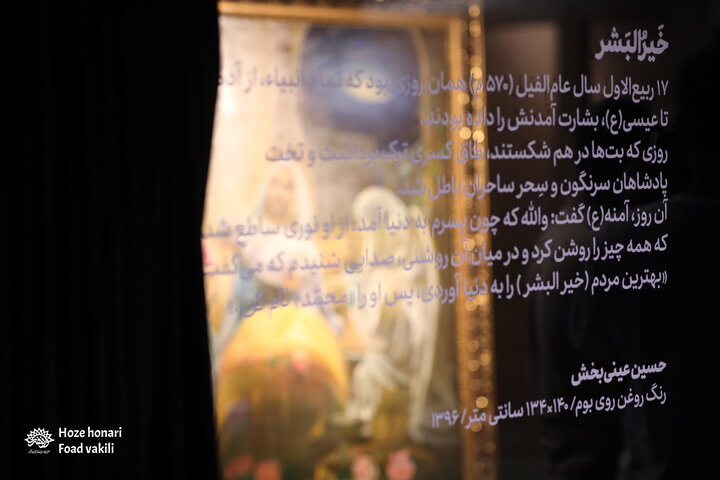 خَیرُالبَشر
۱۷ ربیع‌الاول سال عام‌الفیل (۵۷۰ م) همان روزی بود که تمام انبیاء، از آدم
تا عیسی(ع)، بشارت آمدنش را داده بودند.
روزی که بت‌ها در هم شکستند، طاق کسری ترک برداشت و تخت
پادشاهان سرنگون و سِحر ساحران باطل شد.
آن روز، آمنه(ع) گفت: والله که چون پسرم به دنیا آمد، از او نوری ساطع شد
که همه چیز را روشن کرد و در میان آن روشنی، صدایی شنیدم که می‌گفت:
«بهترین مردم (خیر البشر) را به دنیا آوردی، پس او را «محمّد» نام کن.»
حسین عینی‌بخش
رنگ روغن روی بوم/ ۱۴۰×۱۳۴ سانتی متر/ ۱۳۹۶
Hoze honari
Foad vakili